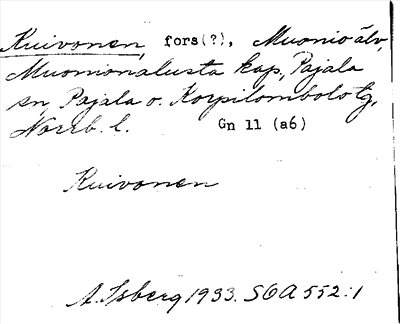 Kuivonen, fors(?), Muonio älv,
Muonionalusta kap, Pajala
sn, Pajala o. Korpilombolo tg,
Norrb. l. Gn 11 (a6)
Kuivonen
A. Isberg 1933. SOA 552:1